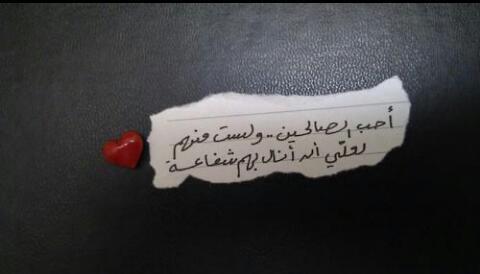 أحب الصالحين .. ولست منهم
لعلّي أن أنال بهم شفاعة